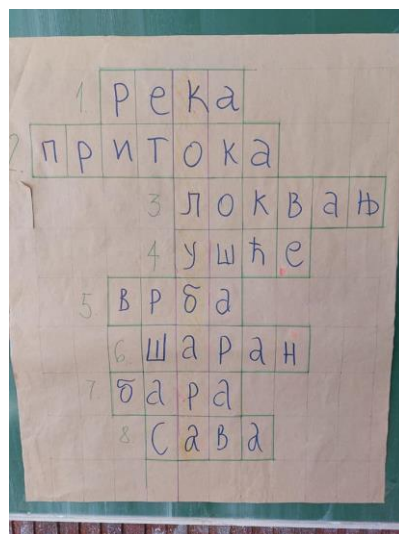 1. река
2. притока
3 локвањ
4 ушће
5 врба
6. шаран
7. бара
8 Сава